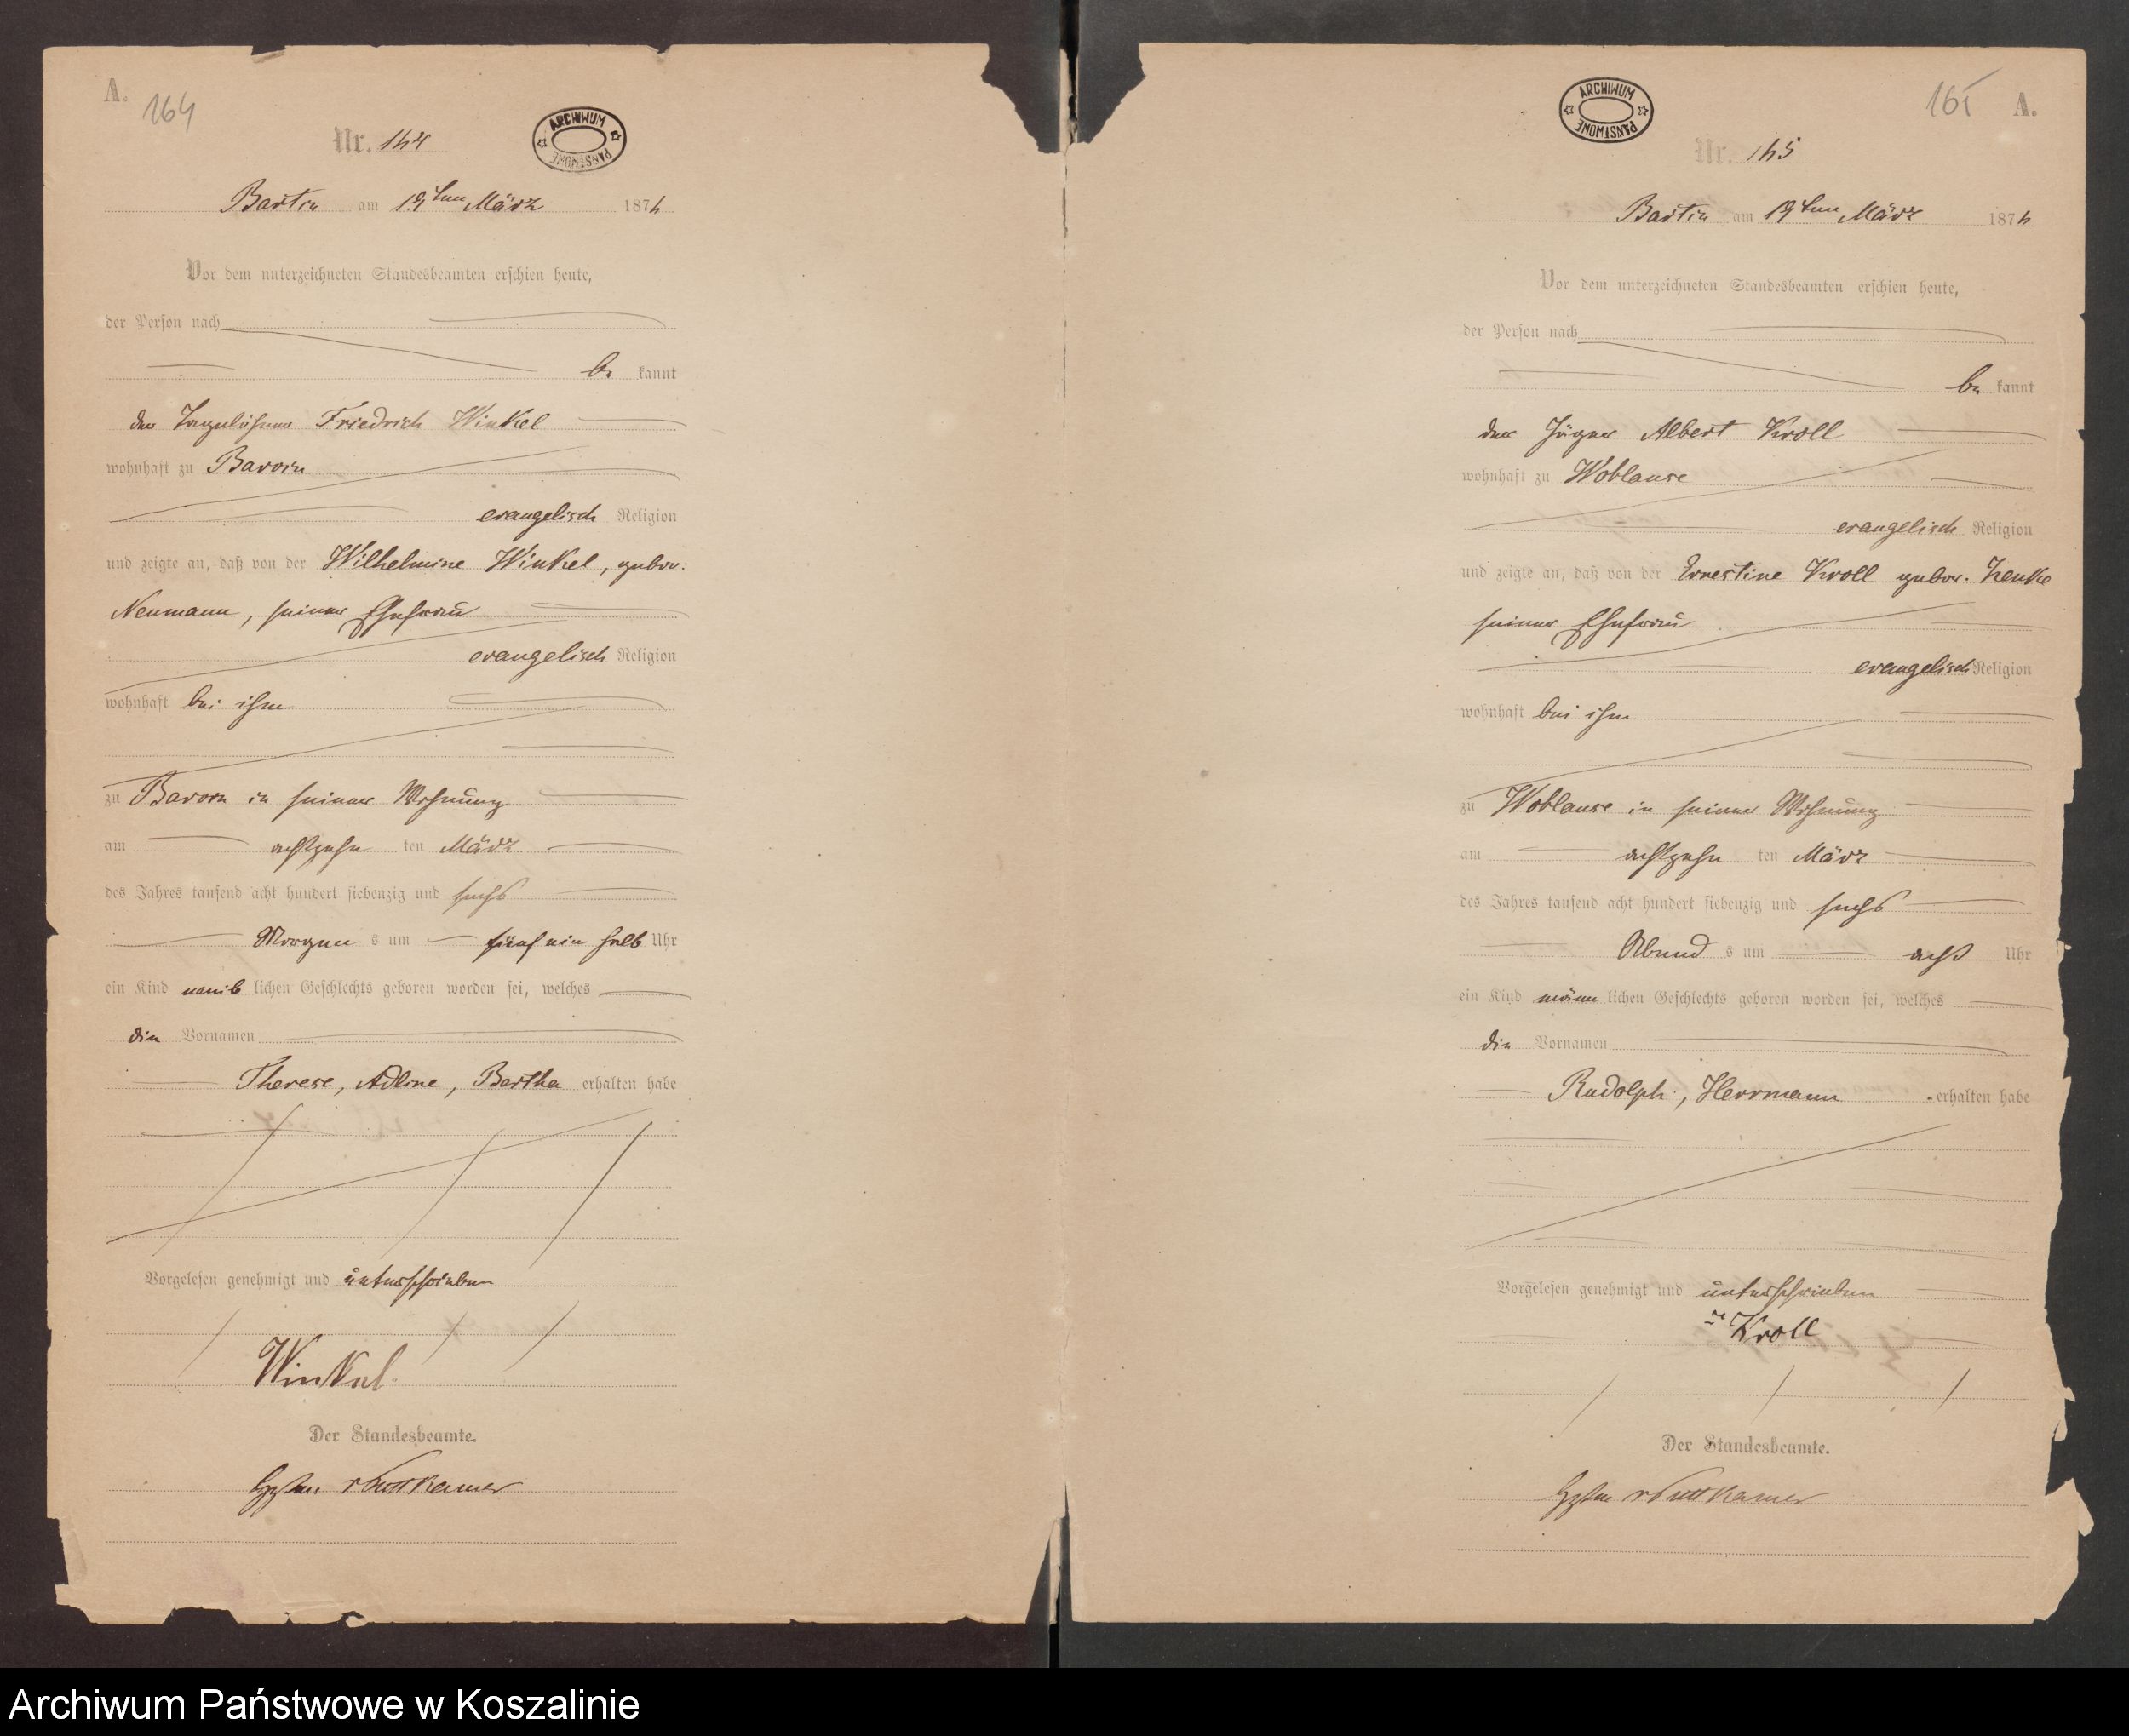 A.
164
ARCHIWUM PAŃSTWOWE
Nr. 164
Bartin am 19ten März 1876
Vor dem unterzeichneten Standesbeamten erschien heute,
der Person nach
be kannt
der Tagelöhner Friedrich Winkel
wohnhaft zu Barvin
evangelisch Religion
und zeigte an, daß von der Wilhelmine Winkel, gebor.
Neumann, seiner Ehefrau
evangelisch Religion
wohnhaft bei ihm
zu Barvin in seiner Wohnung
am achtzehn ten März
des Jahres tausend acht hundert siebenzig und sechs
Morgen s um fünf ein halb Uhr
ein Kind weib lichen Geschlechts geboren worden sei, welches
die Vornamen
Therese, Adline, Bertha erhalten habe
Vorgelesen genehmigt und unterschrieben
Winkel
Der Standesbeamte.
v Puttkamer
ARCHIWUM PAŃSTWOWE
165
A.
Nr. 165
Bartin am 19ten März 1876
Vor dem unterzeichneten Standesbeamten erschien heute,
der Person nach
be kannt
der Jäger Albert Kroll
wohnhaft zu Woblanse
evangelisch Religion
und zeigte an, daß von der Ernestine Kroll gebor. Henke
seiner Ehefrau
evangelisch Religion
wohnhaft bei ihm
zu Woblanse in seiner Wohnung
am achtzehn ten März
des Jahres tausend acht hundert siebenzig und sechs
Abend s um acht Uhr
ein Kind männ lichen Geschlechts geboren worden sei, welches
die Vornamen
Rudolph, Herrmann erhalten habe
Vorgelesen genehmigt und unterschrieben
Kroll
Der Standesbeamte.
v Puttkamer
Archiwum Państwowe w Koszalinie